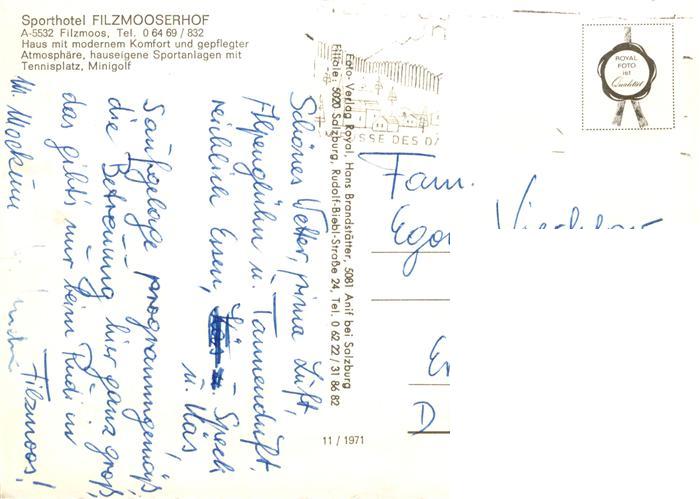 Sporthotel FILZMOOSERHOF
A-5532 Filzmoos, Tel. 0 64 69 / 832
Haus mit modernem Komfort und gepflegter
Atmosphäre, hauseigene Sportanlagen mit
Tennisplatz, Minigolf
Schönes Wetter, prima Luft,
Alpenglühn u. Tannenduft,
reichlich Essen, Speck
u. Kas
Saufgelage programmgemäß,
die Betreuung hier ganz groß,
das gibt's nur beim Rudi in
Filzmoos!
Foto-Verlag Royal, Hans Brandstätter, 5081 Anif bei Salzburg
Filiale: 5020 Salzburg, Rudolf-Biebl-Straße 24, Tel. 0 62 22 / 31 86 82
11 / 1971
SSE DES DA
ROYAL
FOTO
ist
Qualität
Fam.
Egon
D